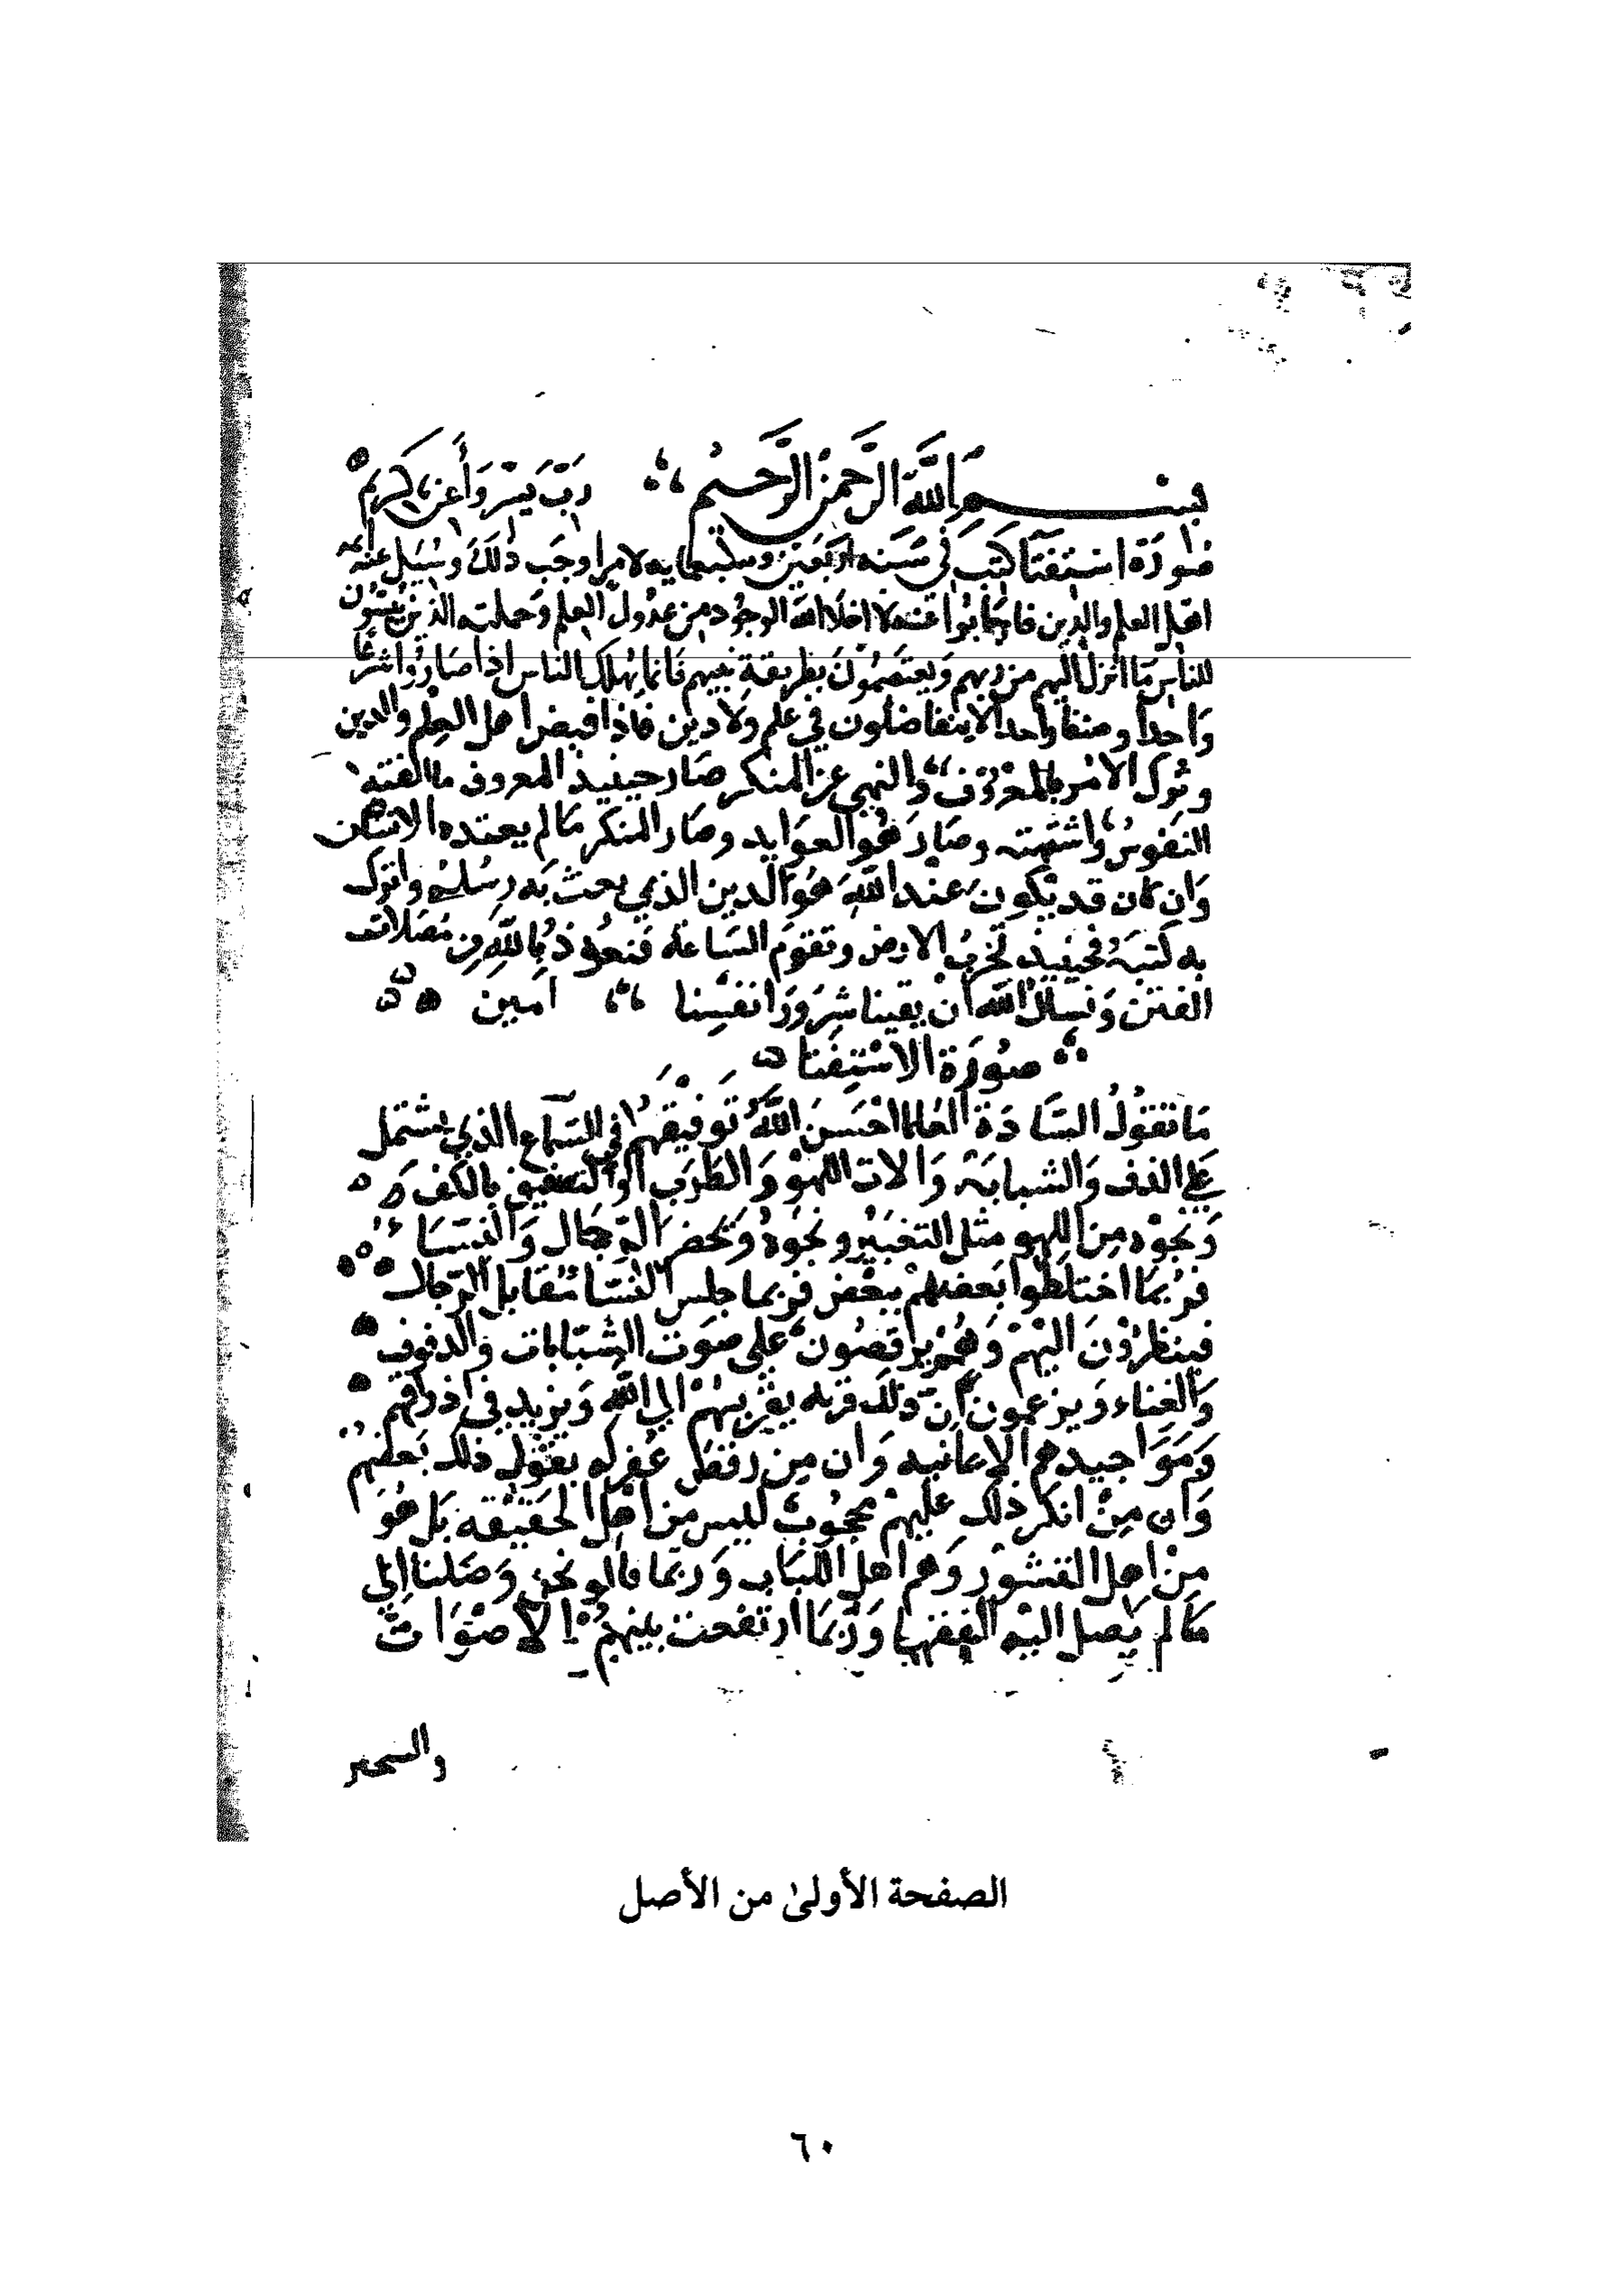 بسم الله الرحمن الرحيم رب يسر وأعن يا كريم
صورة استفتا كتب في سنة اربعين وسبعمايه لامر اوجب ذلك وسيل عنه
اهل العلم والدين فاجابوا عنه لا اخلا الله الوجود من عدول العلم وحملته الذين يبينون
للناس ما انزل اليهم من ربهم ويعتصمون بطريقة نبيهم فانما يهلك الناس اذا صاروا شرعًا
واحدًا وصنفا واحدا لا يتفاضلون في علم ولا دين فاذا قبض اهل العلم والدين
وترك الامر بالمعروف والنهي عن المنكر صار حينيذ المعروف ما الفته
النفوس واشتهته وصار هو العوايد وصار المنكر ما لم يعتده الانسان
وان كان قد يكون عند الله هو الدين الذي بعث به رسله وانزل
به كتبه فحينيذ تخرب الارض وتقوم الساعة فنعوذ بالله من مضلات
الفتن ونسال الله ان يقينا شرور انفسنا امين
صورة الاستفتا
ما تقول السادة العلما احسن الله توفيقهم في السماع الذي يشتمل
على الدف والشبابة والات اللهو والطرب او التصفيق بالكف
ونحوه من اللهو مثل التغبير ونحوه ويحضر الرجال والنساء
فربما اختلطوا بعضهم ببعض فربما جلس النسا مقابل الرجال
فينظرون اليهم وهم يرقصون على صوت الشبابات والدفوف
والغناء ويزعمون ان ذلك قربه يقربهم الي الله ويزيد في اذواقهم
ومواجيدهم الايمانيه وان من رقص غفر له يقول ذلك بعضهم
وان من انكر ذلك عليهم محجوب ليس من اهل الحقيقه بل هو
من اهل القشور وهم اهل اللباب وربما قالو نحن وصلنا الي
ما لم يصل اليه الفقها وربما ارتفعت بينهم الاصوات
الصفحة الأولى من الأصل
٦٠